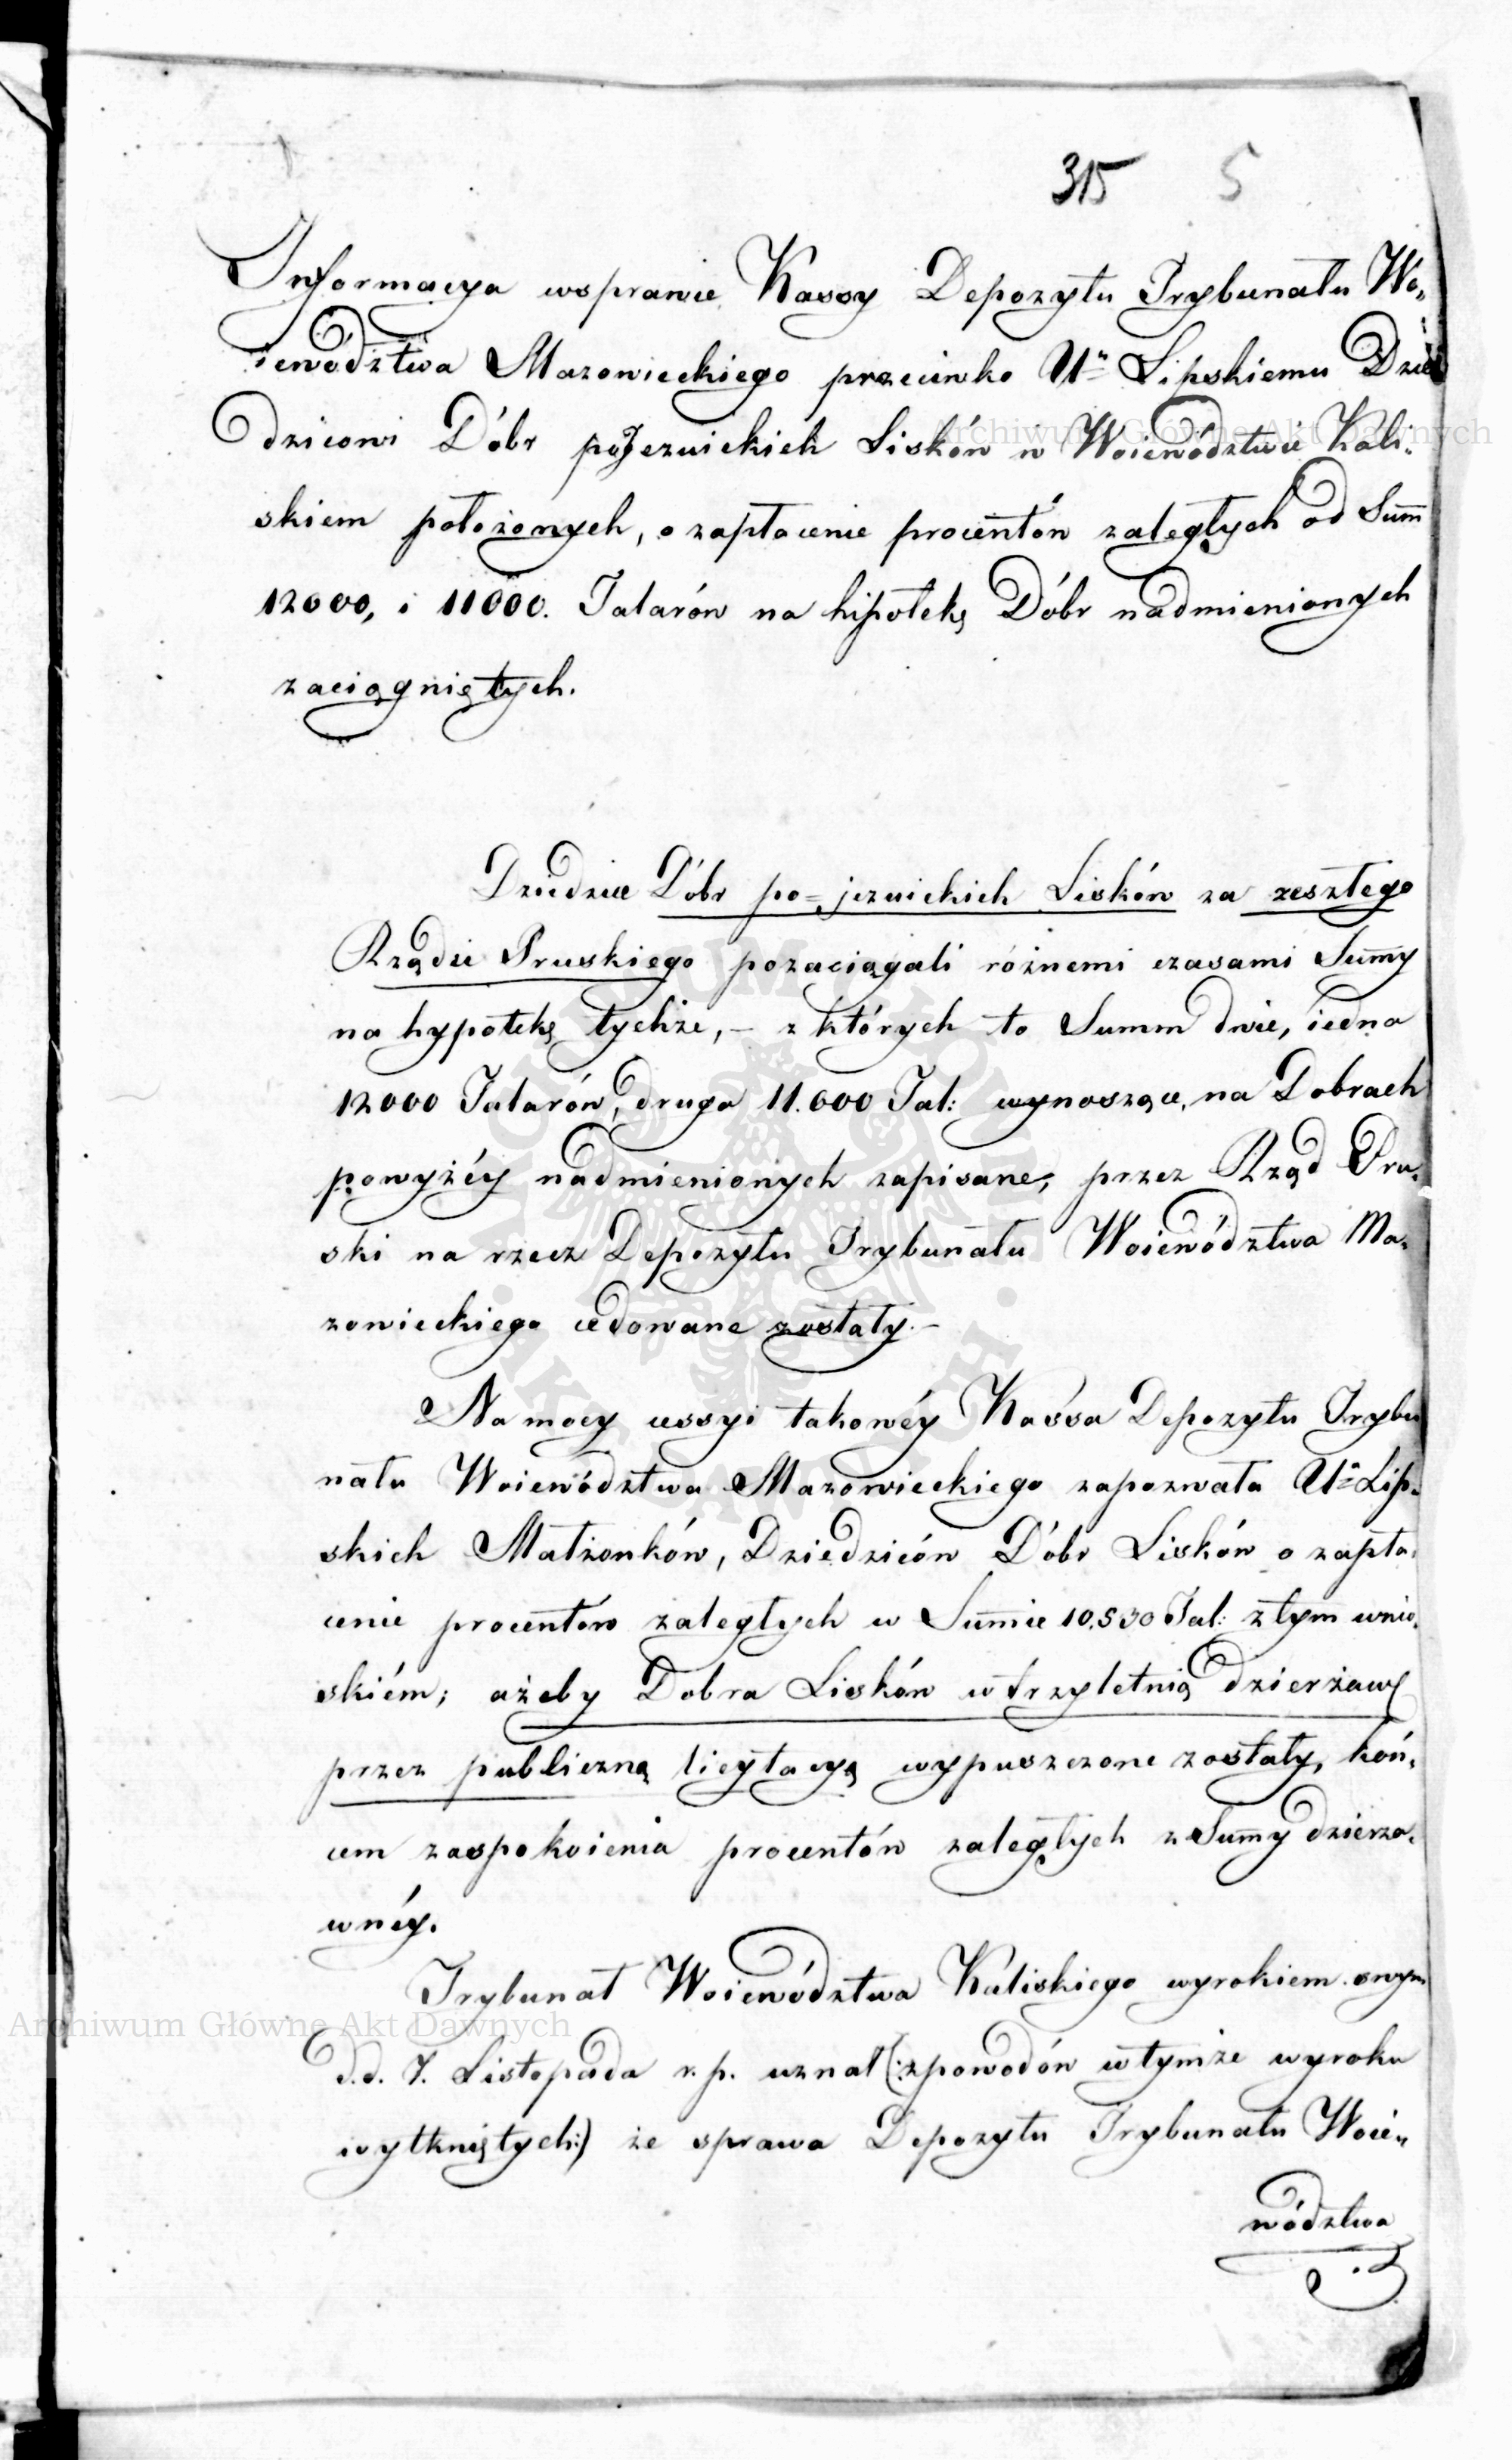 315 5
Informacya wsprawie Kassy Depozytu Trybunału Wo„
iewództwa Mazowieckiego przeciwko Ur Lipskiemu Dzie
dzicowi Dóbr pojezuickich Lisków w Woiewództwie Kali„
skiem położonych, o zapłacenie procentów zaległych od Summ
12000, i 11000. Talarów na hipotekę Dóbr nadmienionych
zaciągniętych.
Dziedzice Dóbr po=jezuickich Lisków za zeszłego
Rządu Pruskiego pozaciągali różnemi czasami Summy
na hypotekę tychże, – z których to Summ dwie, iedna
12000 Talarów, druga 11.000 Tal: wynoszące, na Dobrach
powyżéy nadmienionych zapisane, przez Rząd Pru„
ski na rzecz Depozytu Trybunału Woiewództwa Ma„
zowieckiego cedowane zostały. –
Na mocy cessyi takowéy Kassa Depozytu Trybu
nału Woiewództwa Mazowieckiego zapozwała Ur Lip„
skich Małżonków, Dziedziców Dóbr Lisków o zapła„
cenie procentów zaległych w Summie 10,530 Tal: z tym wnio„
skiém; ażeby Dobra Lisków w trzyletnią dzierżawę
przez publiczną licytacyą wypuszczone zostały, koń„
cem zaspokoienia procentów zaległych z Summy dzierża„
wnéy.
Trybunał Woiewództwa Kaliskiego wyrokiem swym
d.d. 7. Listopada r. p. uznał (: z powodów w tymże wyroku
wytkniętych:) że sprawa Depozytu Trybunału Woie„
wództwa
Archiwum Główne Akt Dawnych
Archiwum Główne Akt Dawnych